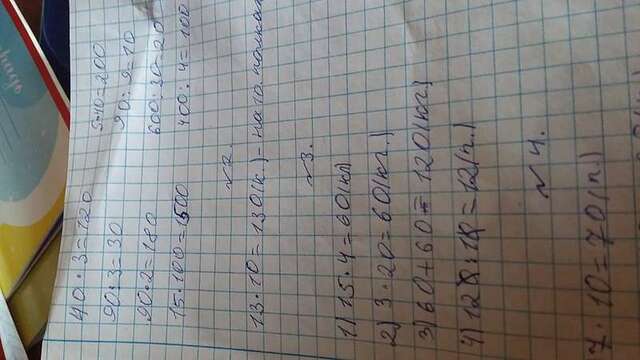 40 · 3 = 120
90 : 3 = 30
90 · 2 = 180
15 · 100 = 1500
5 · 40 = 200
90 : 9 = 10
600 : 30 = 20
400 : 4 = 100
№2.
13 · 10 = 130 (к.) – на 10 полках
№3.
1) 15 · 4 = 60 (кг)
2) 3 · 20 = 60 (кг.)
3) 60 + 60 = 120 (кг)
4) 120 : 10 = 12 (п.)
№4.
7 · 10 = 70 (п.)